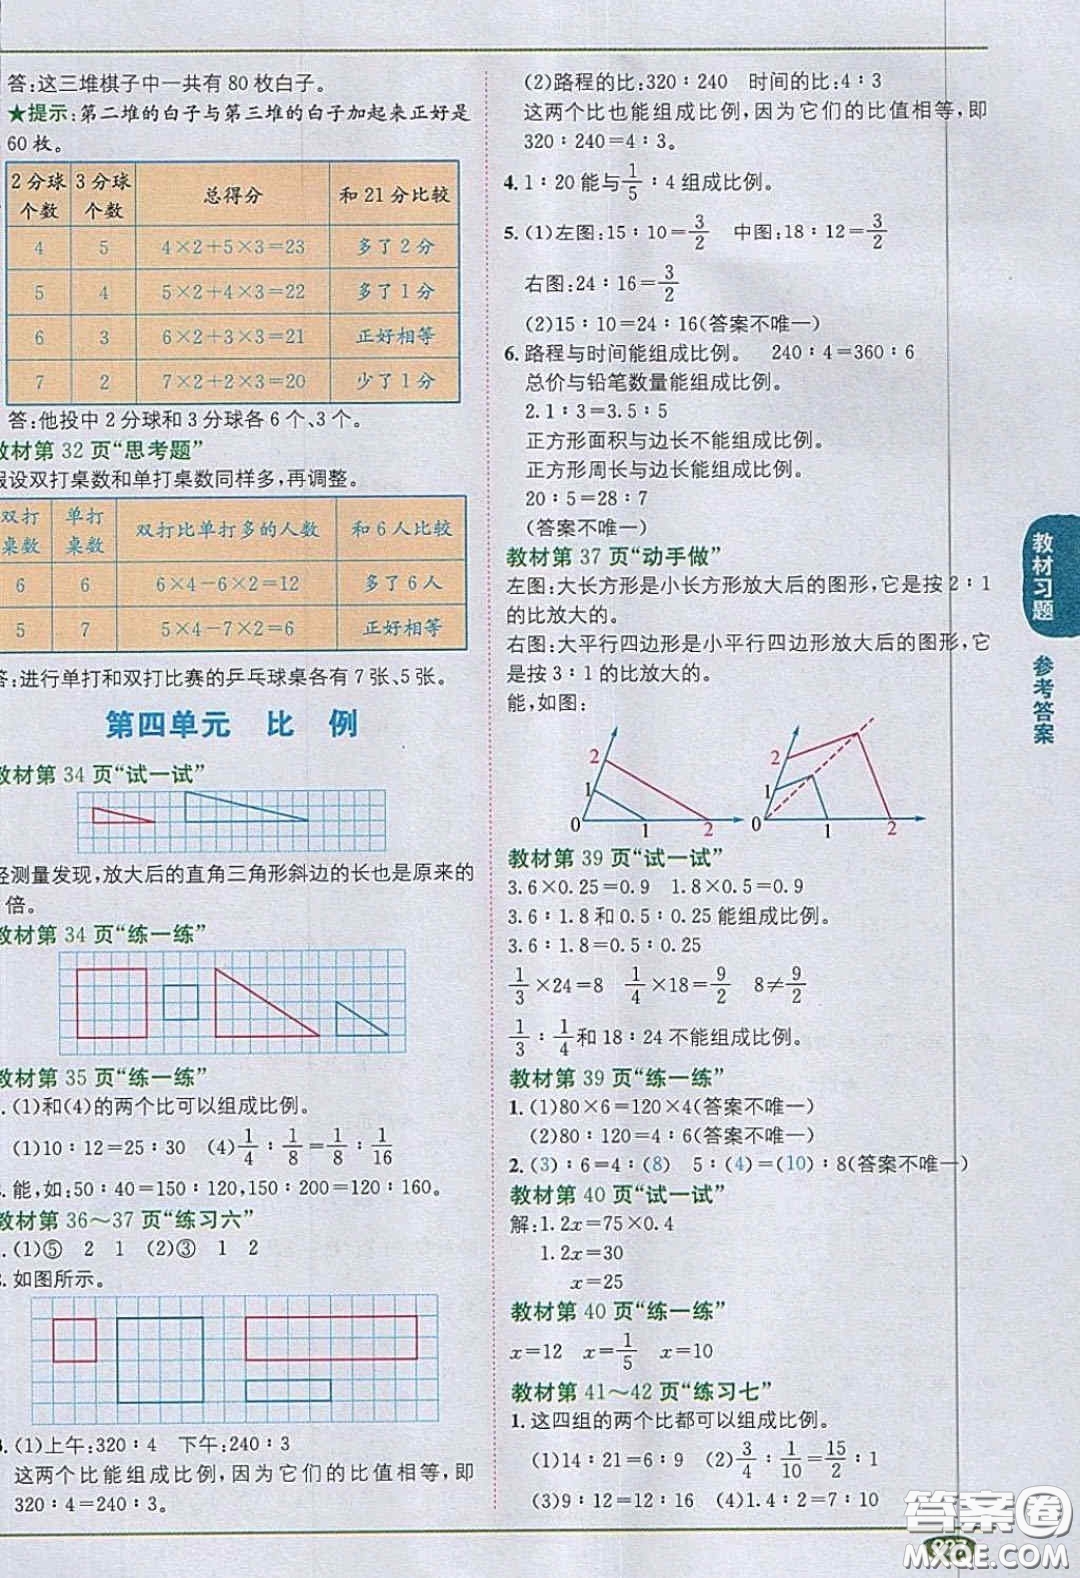 答:这三堆棋子中一共有80枚白子。
★提示:第二堆的白子与第三堆的白子加起来正好是
60枚。
2分球个数 3分球个数 总得分 和21分比较
4 5 4×2+5×3=23 多了2分
5 4 5×2+4×3=22 多了1分
6 3 6×2+3×3=21 正好相等
7 2 7×2+2×3=20 少了1分
答:他投中2分球和3分球各6个、3个。
教材第32页“思考题”
假设双打桌数和单打桌数同样多,再调整。
双打桌数 单打桌数 双打比单打多的人数 和6人比较
6 6 6×4-6×2=12 多了6人
5 7 5×4-7×2=6 正好相等
答:进行单打和双打比赛的乒乓球桌各有7张、5张。
第四单元 比 例
教材第34页“试一试”
经测量发现,放大后的直角三角形斜边的长也是原来的
倍。
教材第34页“练一练”
教材第35页“练一练”
. (1)和(4)的两个比可以组成比例。
(1)10∶12=25∶30 (4)1/4∶1/8=1/8∶1/16
. 能,如:50∶40=150∶120,150∶200=120∶160。
教材第36～37页“练习六”
. (1)⑤ 2 1 (2)③ 1 2
. 如图所示。
. (1)上午:320∶4 下午:240∶3
这两个比能组成比例,因为它们的比值相等,即
320∶4=240∶3。
(2)路程的比:320∶240 时间的比:4∶3
这两个比也能组成比例,因为它们的比值相等,即
320∶240=4∶3。
4. 1∶20能与1/5∶4组成比例。
5. (1)左图:15∶10=3/2 中图:18∶12=3/2
右图:24∶16=3/2
(2)15∶10=24∶16(答案不唯一)
6. 路程与时间能组成比例。 240∶4=360∶6
总价与铅笔数量能组成比例。
2.1∶3=3.5∶5
正方形面积与边长不能组成比例。
正方形周长与边长能组成比例。
20∶5=28∶7
(答案不唯一)
教材第37页“动手做”
左图:大长方形是小长方形放大后的图形,它是按2∶1
的比放大的。
右图:大平行四边形是小平行四边形放大后的图形,它
是按3∶1的比放大的。
能,如图:
2 1 0 1 2
2 1 0 1 2
教材第39页“试一试”
3.6×0.25=0.9 1.8×0.5=0.9
3.6∶1.8和0.5∶0.25能组成比例。
3.6∶1.8=0.5∶0.25
1/3×24=8 1/4×18=9/2 8≠9/2
1/3∶1/4和18∶24不能组成比例。
教材第39页“练一练”
1. (1)80×6=120×4(答案不唯一)
(2)80∶120=4∶6(答案不唯一)
2. (3)∶6=4∶(8) 5∶(4)=(10)∶8(答案不唯一)
教材第40页“试一试”
解:1.2x=75×0.4
1.2x=30
x=25
教材第40页“练一练”
x=12 x=1/5 x=10
教材第41～42页“练习七”
1. 这四组的两个比都可以组成比例。
(1)14∶21=6∶9 (2)3/4∶1/10=15/2∶1
(3)9∶12=12∶16 (4)1.4∶2=7∶10
教材习题
参考答案
答案圈
MXQE.COM